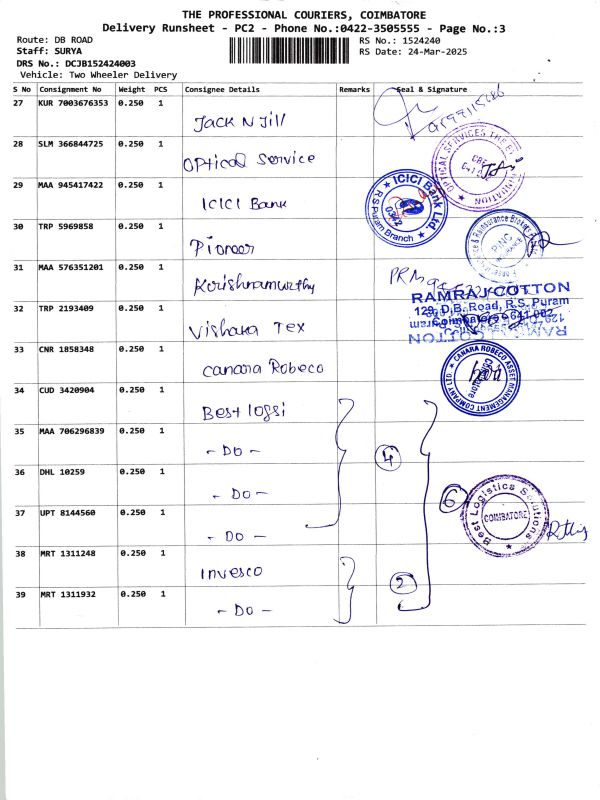 THE PROFESSIONAL COURIERS, COIMBATORE
Delivery Runsheet - PC2 - Phone No.:0422-3505555 - Page No.:3
Route: DB ROAD
RS No.: 1524240
Staff: SURYA
RS Date: 24-Mar-2025
DRS No.: DCJB152424003
Vehicle: Two Wheeler Delivery
S No Consignment No Weight PCS Consignee Details Remarks Seal & Signature
27 KUR 7003676353 0.250 1 Jack N Jill
28 SLM 366844725 0.250 1 Optical Service
29 MAA 945417422 0.250 1 ICICI Bank
ICICI Bank Ltd.
R S Puram Branch
30 TRP 5969858 0.250 1 Pioneer
31 MAA 576351201 0.250 1 Krishnamurthy
RAMRAJ COTTON
129, D.B. Road, R.S. Puram
Coimbatore - 641 002.
32 TRP 2193409 0.250 1 Vishaka Tex
33 CNR 1858348 0.250 1 Canara Robeco
CANARA ROBECO ASSET MANAGEMENT COMPANY LTD.
COIMBATORE
34 CUD 3420904 0.250 1 Best logsi
35 MAA 706296839 0.250 1 - Do - 4
36 DHL 10259 0.250 1 - Do -
6
Best Logistics Solutions
COIMBATORE
37 UPT 8144560 0.250 1 - Do -
38 MRT 1311248 0.250 1 Invesco 2
39 MRT 1311932 0.250 1 - Do -